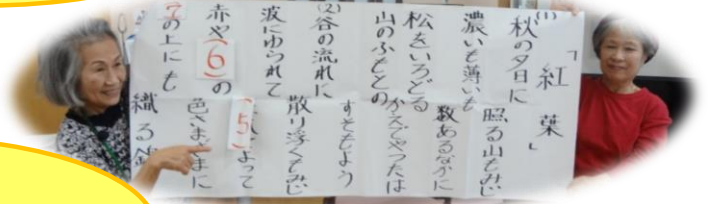 「紅葉」
(1)秋の夕日に 照る山もみじ
濃いも薄いも 数あるなかに
松をいろどる かえでやつたは
山のふもとの すそもよう
(2)谷の流れに 散り浮くもみじ
波にゆられて (5) よって
赤や(6)の 色さまざまに
7の上にも 織る錦